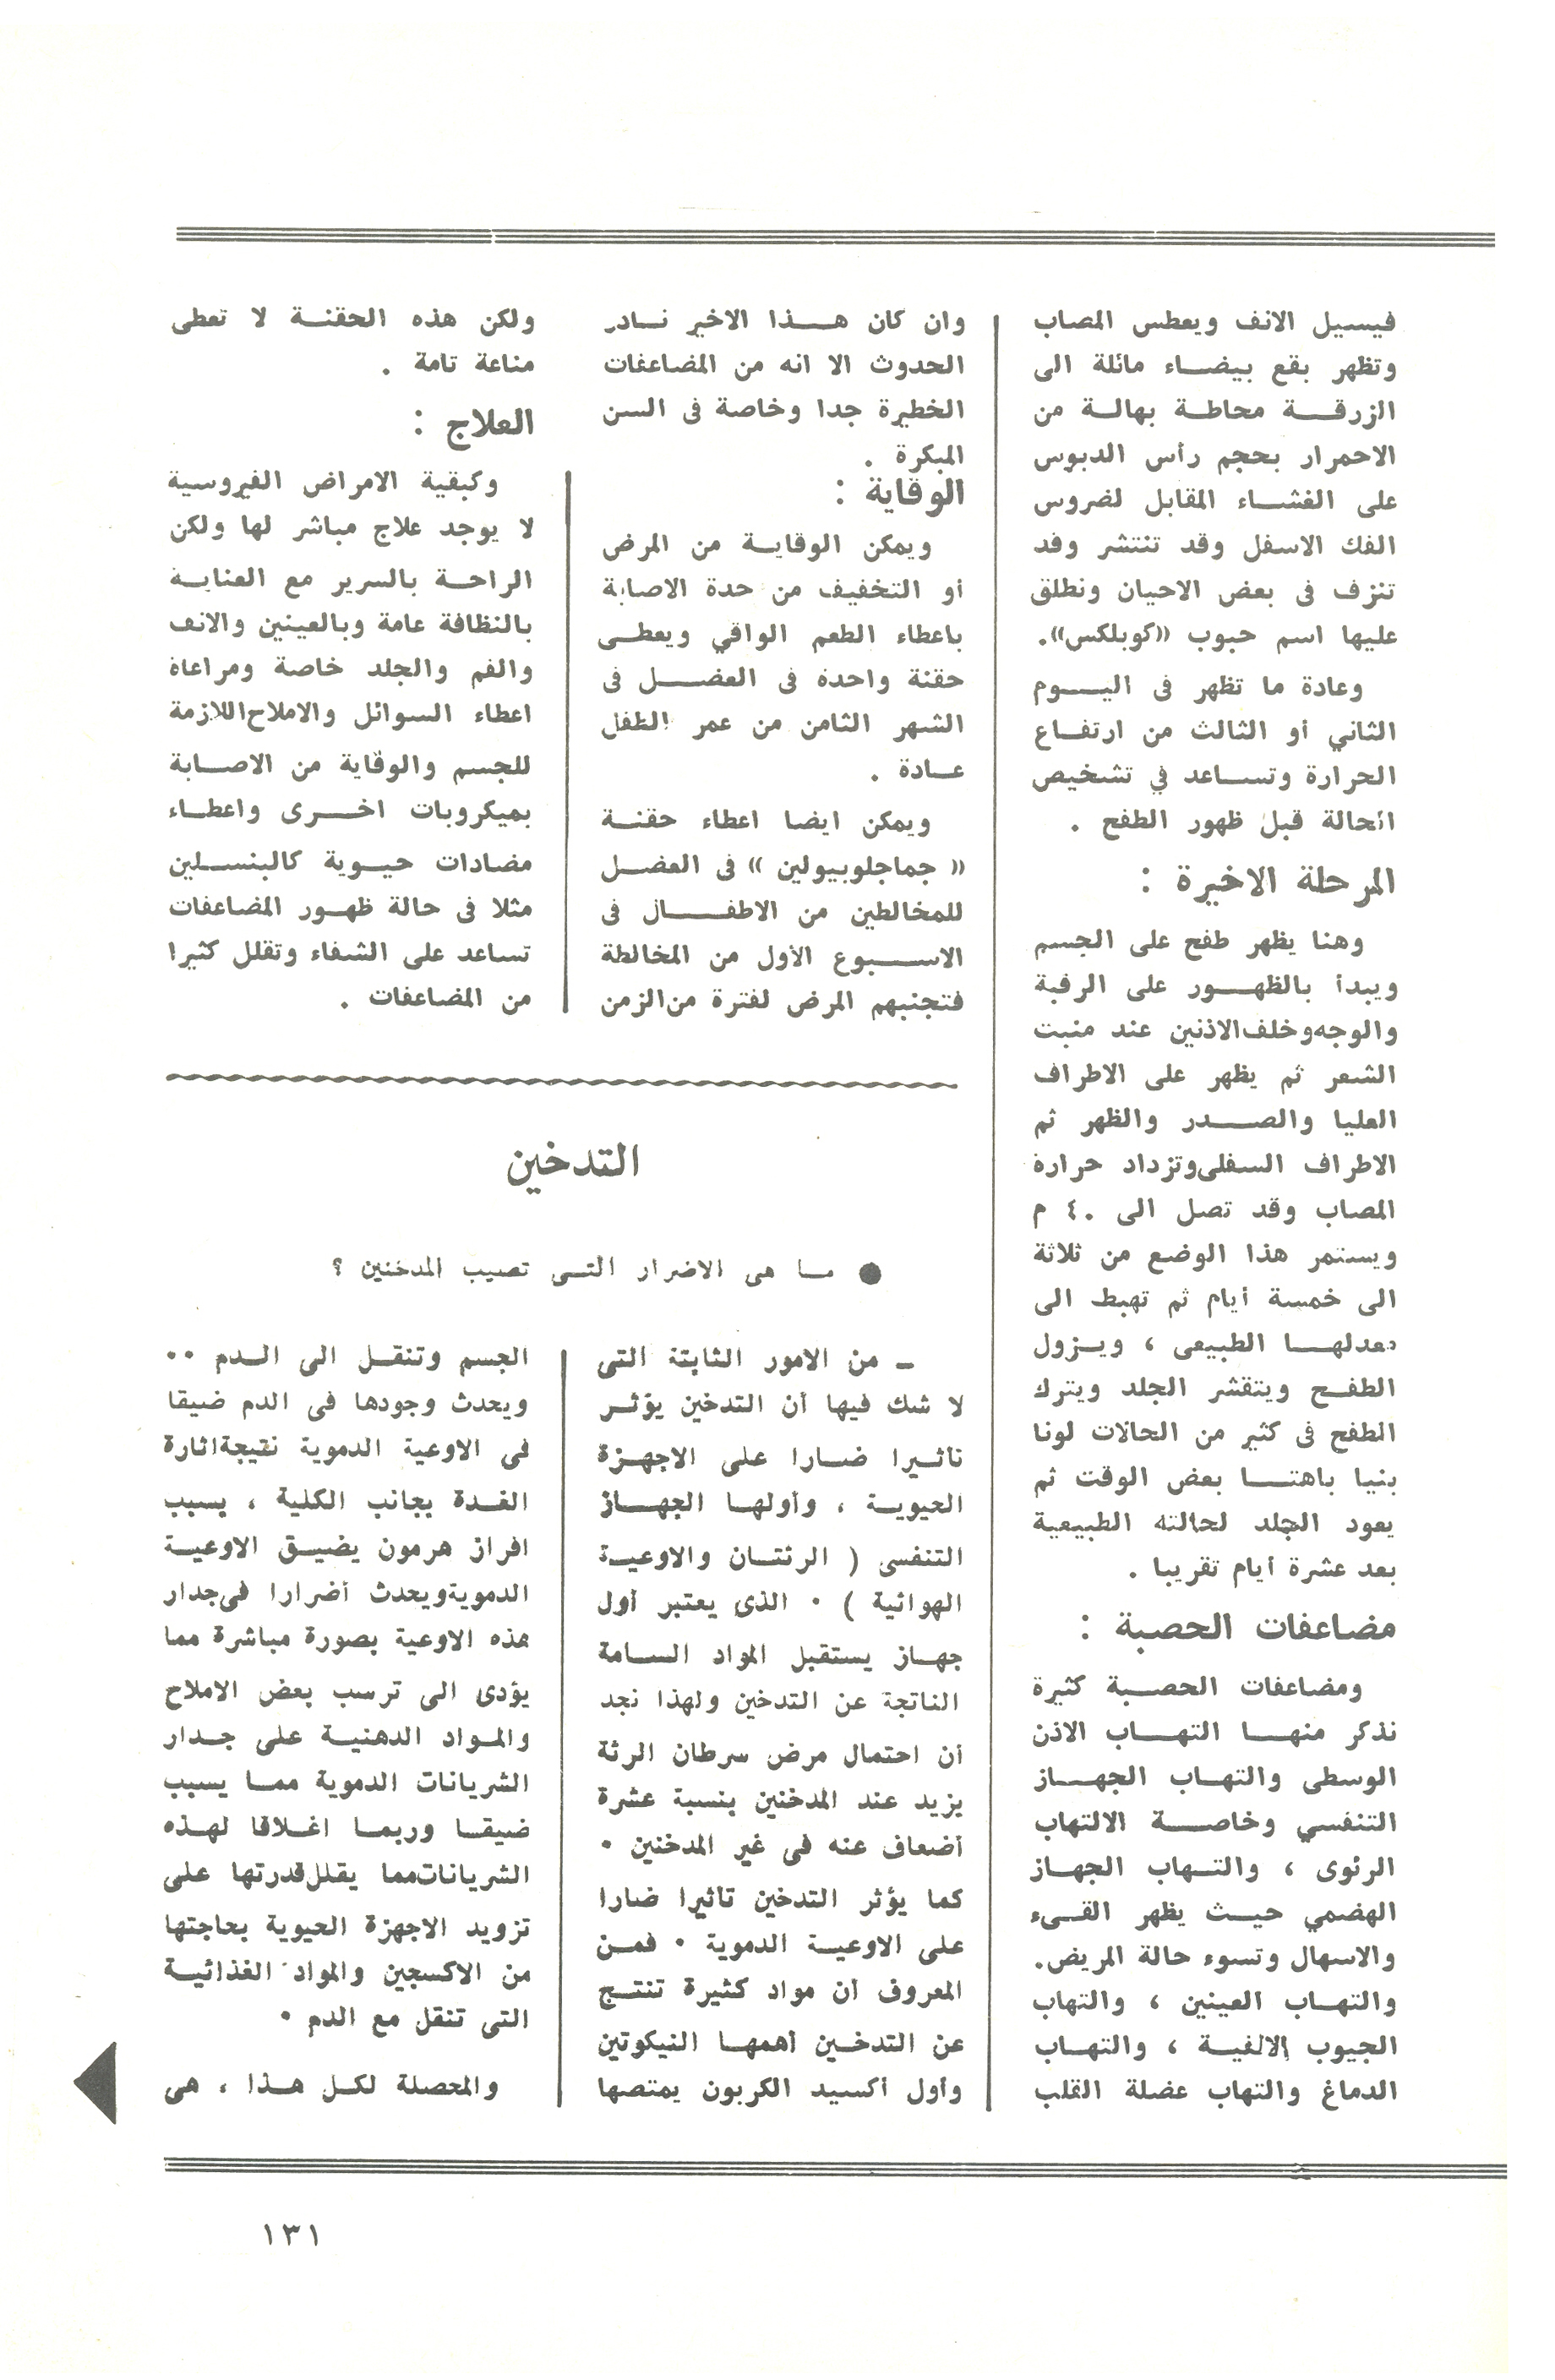 فيسيل الانف ويعطس المصاب
وتظهر بقع بيضاء مائلة الى
الزرقة محاطة بهالة من
الاحمرار بحجم رأس الدبوس
على الغشاء المقابل لضروس
الفك الاسفل وقد تنتشر وقد
تنزف فى بعض الاحيان ونطلق
عليها اسم حبوب «كوبلكس».
وعادة ما تظهر فى اليوم
الثاني أو الثالث من ارتفاع
الحرارة وتساعد في تشخيص
الحالة قبل ظهور الطفح .
المرحلة الاخيرة :
وهنا يظهر طفح على الجسم
ويبدأ بالظهور على الرقبة
والوجه وخلف الاذنين عند منبت
الشعر ثم يظهر على الاطراف
العليا والصدر والظهر ثم
الاطراف السفلى وتزداد حرارة
المصاب وقد تصل الى ٤٠ م
ويستمر هذا الوضع من ثلاثة
الى خمسة أيام ثم تهبط الى
معدلها الطبيعى ، ويزول
الطفح ويتقشر الجلد ويترك
الطفح فى كثير من الحالات لونا
بنيا باهتا بعض الوقت ثم
يعود الجلد لحالته الطبيعية
بعد عشرة أيام تقريبا .
مضاعفات الحصبة :
ومضاعفات الحصبة كثيرة
نذكر منها التهاب الاذن
الوسطى والتهاب الجهاز
التنفسي وخاصة الالتهاب
الرئوى ، والتهاب الجهاز
الهضمي حيث يظهر القىء
والاسهال وتسوء حالة المريض.
والتهاب العينين ، والتهاب
الجيوب الانفية ، والتهاب
الدماغ والتهاب عضلة القلب
وان كان هذا الاخير نادر
الحدوث الا انه من المضاعفات
الخطيرة جدا وخاصة فى السن
المبكرة .
الوقاية :
ويمكن الوقاية من المرض
أو التخفيف من حدة الاصابة
باعطاء الطعم الواقي ويعطى
حقنة واحدة فى العضل فى
الشهر الثامن من عمر الطفل
عادة .
ويمكن ايضا اعطاء حقنة
« جماجلوبيولين » فى العضل
للمخالطين من الاطفال فى
الاسبوع الأول من المخالطة
فتجنبهم المرض لفترة من الزمن
ولكن هذه الحقنة لا تعطى
مناعة تامة .
العلاج :
وكبقية الامراض الفيروسية
لا يوجد علاج مباشر لها ولكن
الراحة بالسرير مع العناية
بالنظافة عامة وبالعينين والانف
والفم والجلد خاصة ومراعاة
اعطاء السوائل والاملاح اللازمة
للجسم والوقاية من الاصابة
بميكروبات اخرى واعطاء
مضادات حيوية كالبنسلين
مثلا فى حالة ظهور المضاعفات
تساعد على الشفاء وتقلل كثيرا
من المضاعفات .
التدخين
● ما هى الاضرار التى تصيب المدخنين ؟
ــ من الامور الثابتة التى
لا شك فيها أن التدخين يؤثر
تاثيرا ضارا على الاجهزة
الحيوية ، وأولها الجهاز
التنفسى ( الرئتان والاوعية
الهوائية ) ٠ الذى يعتبر أول
جهاز يستقبل المواد السامة
الناتجة عن التدخين ولهذا نجد
أن احتمال مرض سرطان الرئة
يزيد عند المدخنين بنسبة عشرة
أضعاف عنه فى غير المدخنين ٠
كما يؤثر التدخين تأثيرا ضارا
على الاوعية الدموية ٠ فمن
المعروف أن مواد كثيرة تنتج
عن التدخين أهمها النيكوتين
وأول أكسيد الكربون يمتصها
الجسم وتنقل الى الدم ٠٠
ويحدث وجودها فى الدم ضيقا
فى الاوعية الدموية نتيجة اثارة
الغدة بجانب الكلية ، بسبب
افراز هرمون يضيق الاوعية
الدموية ويحدث أضرارا فى جدار
هذه الاوعية بصورة مباشرة مما
يؤدى الى ترسب بعض الاملاح
والمواد الدهنية على جدار
الشريانات الدموية مما يسبب
ضيقا وربما اغلاقا لهذه
الشريانات مما يقلل قدرتها على
تزويد الاجهزة الحيوية بحاجتها
من الاكسجين والمواد الغذائية
التى تنقل مع الدم ٠
والمحصلة لكل هذا ، هى
١٣١